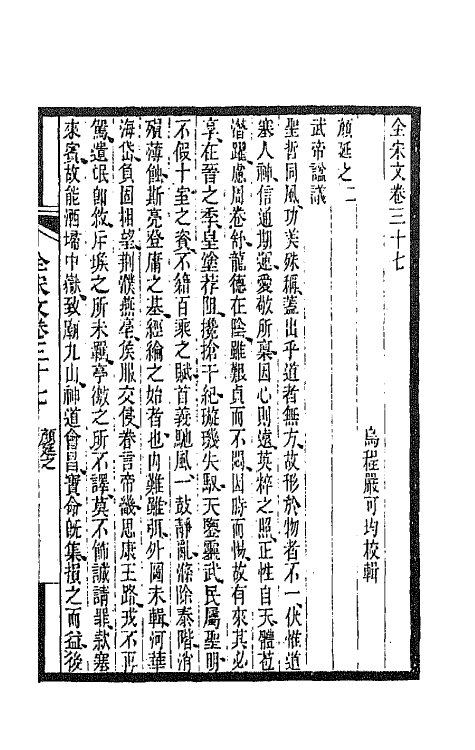 全宋文卷三十七
烏程嚴可均校輯
顏延之二
武帝謚議
聖哲同風功美殊稱蓋出乎道者無方故移於物者不一伏惟道
塞人神信通期運愛敬所稟因心則遠英粹之照正性自天體苞
潛躍慮周卷舒龍德在陰雖艱貞而不悶因時而惕故有來其必
享在晉之季皇塗荐阻攙搶干紀璇璣失馭天鑒靈武民屬聖明
不假十室之資不籍百乘之賦首義馳風一鼓靜亂滌除泰階消
殞薄蝕斯亮登庸之基經綸之始者也內難雖弭外圖未輯河華
海岱負固相望荆濮燕亳侯服交侵眷言帝畿思康王路戎不再
駕遺氓卽敘斥堠之所未羈亭徼之所不譯莫不飾誠請罪款塞
來賓故能洒埽中嶽致廟九山神道會昌寶命旣集損之而益後
全宋文卷三十七
顏延之